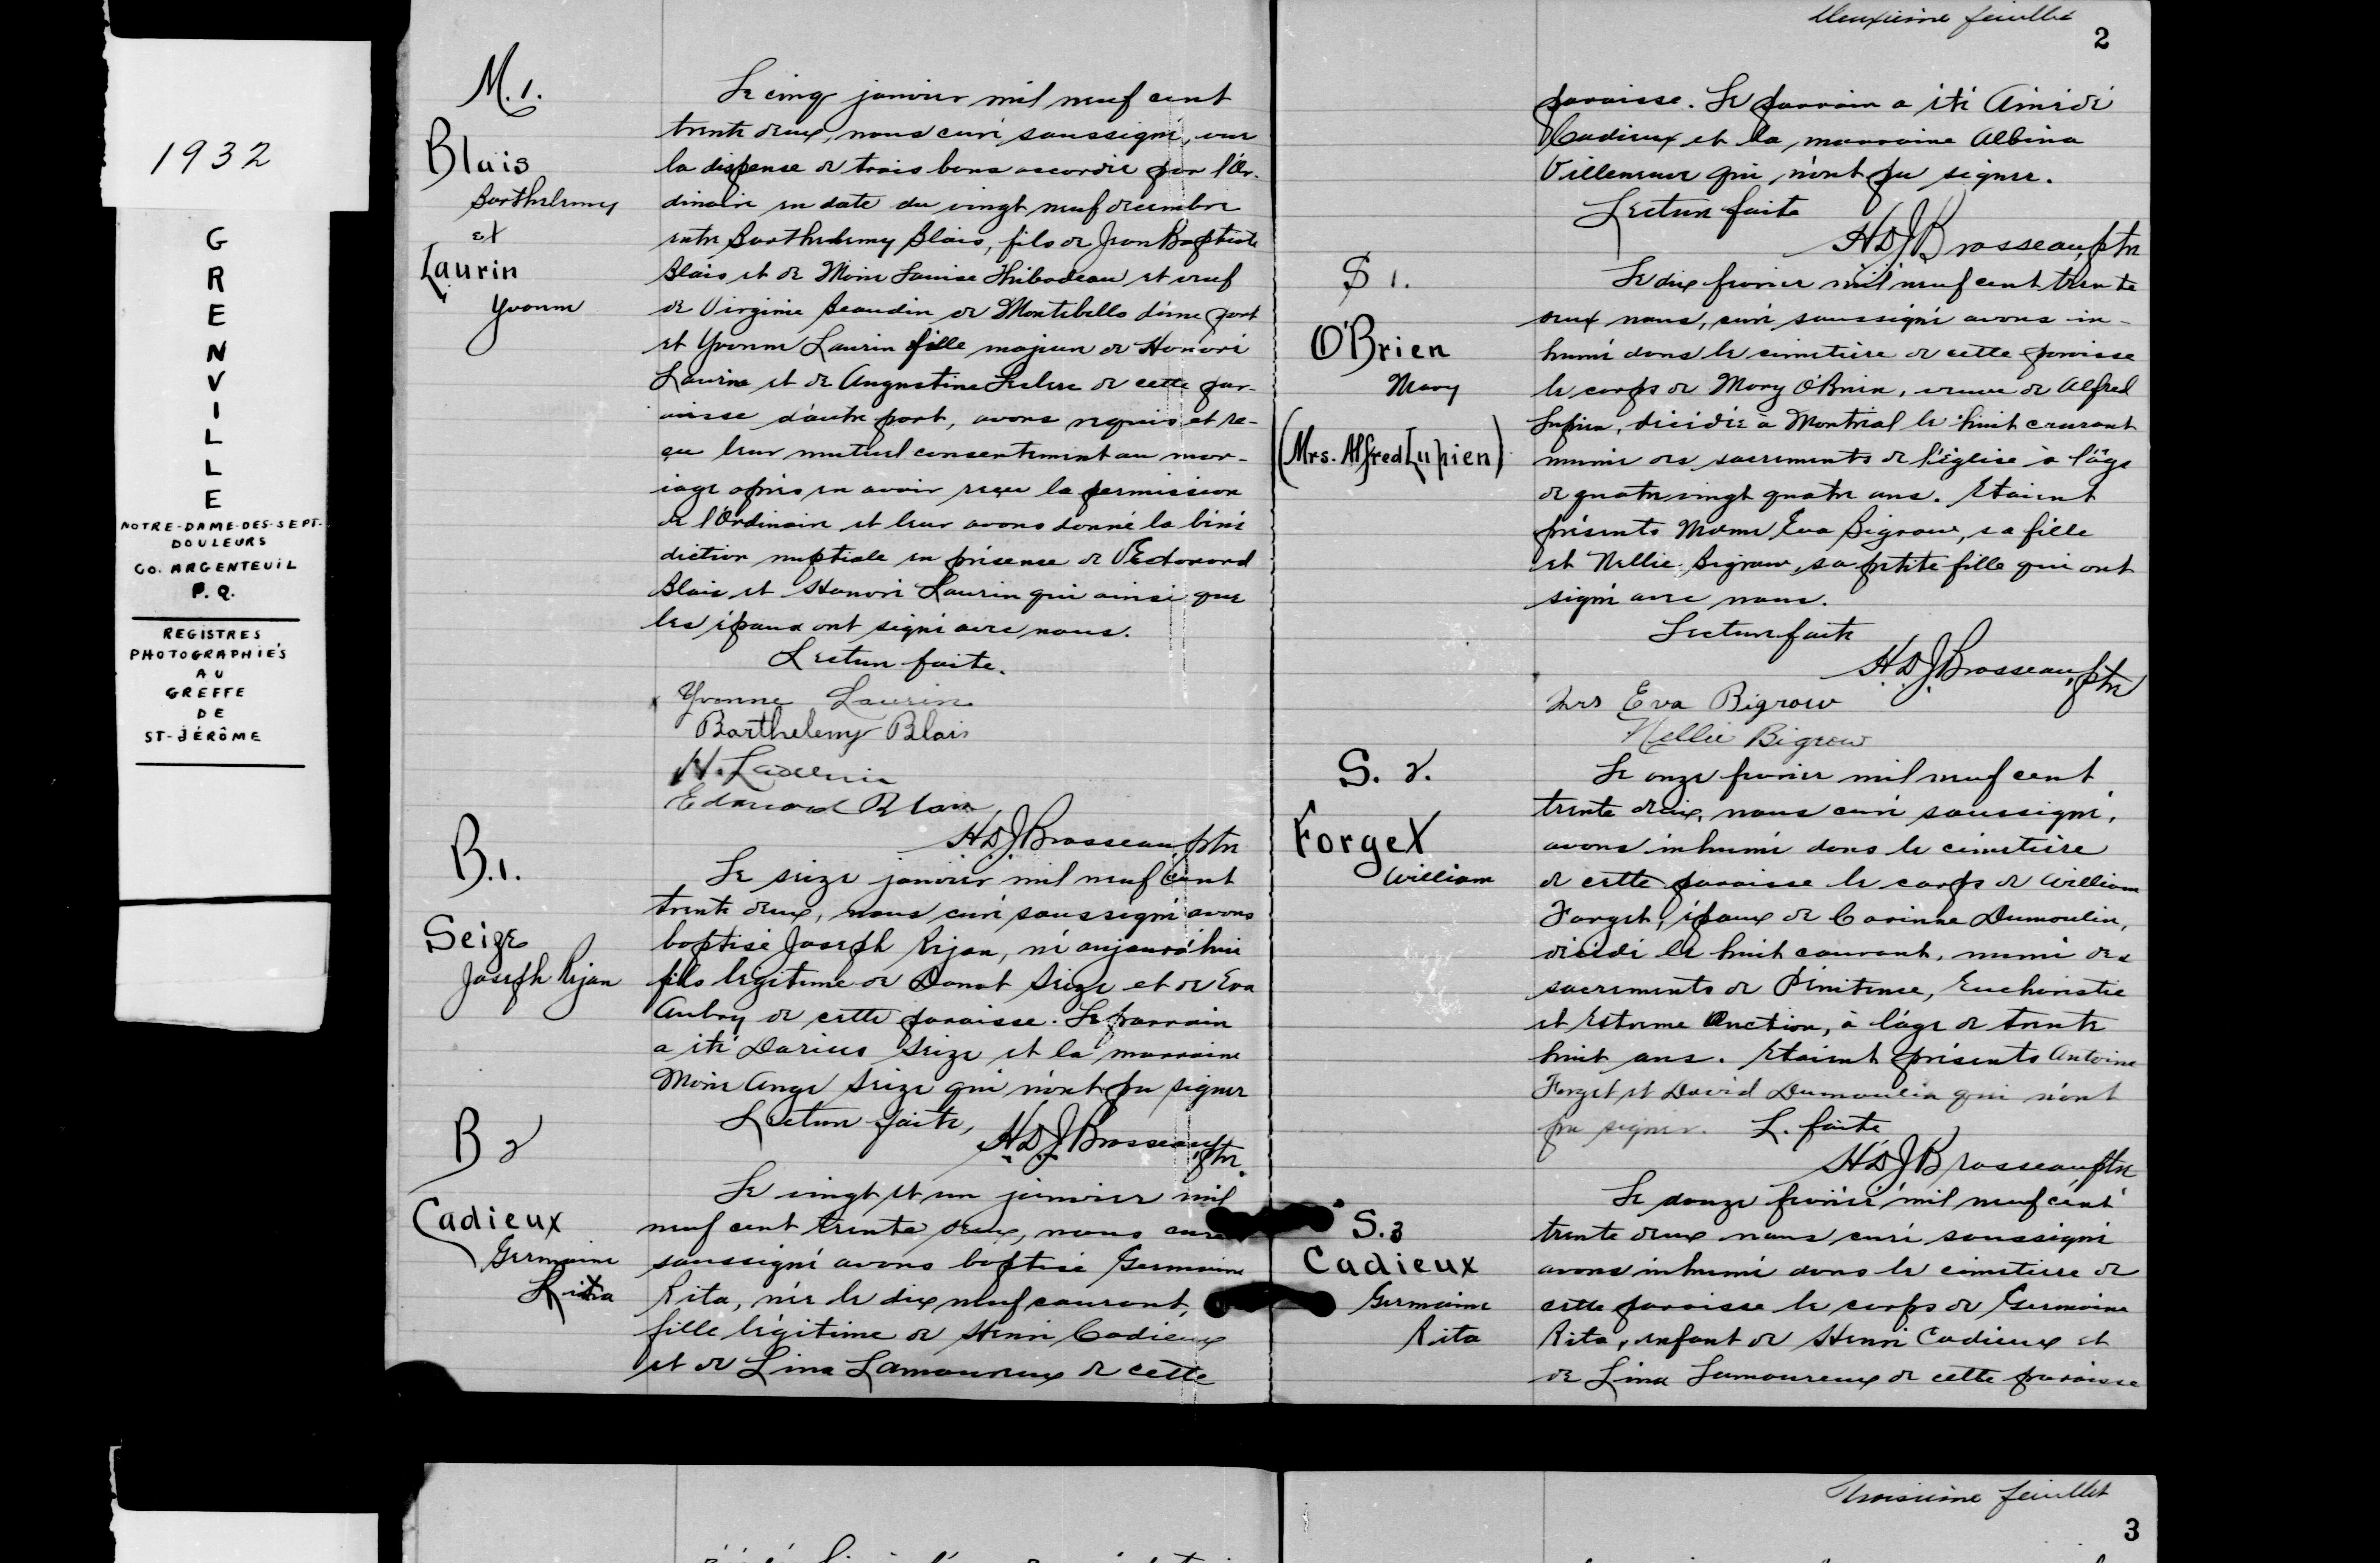 1932
G
R
E
N
V
I
L
L
E
NOTRE-DAME-DES-SEPT-
DOULEURS
CO. ARGENTEUIL
P.Q.
REGISTRES
PHOTOGRAPHIÉS
AU
GREFFE
DE
ST-JÉRÔME
M. 1.
Blais
Barthelemy
et
Laurin
Yvonne
Le cinq janvier mil neuf cent
trente deux, nous curé soussigné, vue
la dispense de trois bans accordée par l'Or-
dinaire en date du vingt neuf decembre
entre Barthelemy Blais, fils de Jean Baptiste
Blais et de Marie Louise Thibodeau et veuf
de Virginie Beaudin de Montebello d'une part
et Yvonne Laurin fille majeure de Honoré
Laurin et de Augustine Leclerc de cette par-
oisse d'autre part, avons requis et re-
çu leur mutuel consentement au mar-
iage après en avoir reçu la permission
de l'Ordinaire et leur avons donné la béné
diction nuptiale en présence de Edouard
Blais et Honoré Laurin qui ainsi que
les époux ont signé avec nous.
Lecture faite.
Yvonne Laurin
Barthelemy Blais
H. Laurin
Edouard Blais
H.D.J. Brosseau, ptre
B.1.
Seize
Joseph Rejan
Le seize janvier mil neuf cent
trente deux, nous curé soussigné avons
baptisé Joseph Rejan, né aujourd'hui
fils légitime de Donat Seize et de Eva
Aubry de cette paroisse. Le parrain
a été Darius Seize et la marraine
Marie Ange Seize qui n'ont pu signer
Lecture faite,
H.D.J. Brosseau, ptre.
B 2
Cadieux
Germaine
Rita
Le vingt et un janvier mil
neuf cent trente deux, nous curé
soussigné avons baptisé Germaine
Rita, née le dix neuf courant,
fille légitime de Henri Cadieux
et de Lina Lamoureux de cette
Deuxième feuillet
2
paroisse. Le parrain a été Aimédé
Cadieux et la marraine Albina
Villeneuve qui n'ont pu signer.
Lecture faite
H D J Brosseau, ptre
S 1.
O'Brien
Mary
(Mrs. Alfred Lupien)
Le dix fevrier mil neuf cent trente
deux nous, curé soussigné avons in-
humé dans le cimetière de cette paroisse
le corps de Mary O'Brien, veuve de Alfred
Lupien, décédée à Montréal le huit courant
munie des sacrements de l'église à l'âge
de quatre vingt quatre ans. Etaient
présents Mdme Eva Bigrow, sa fille
et Nellie Bigrow, sa petite fille qui ont
signé avec nous.
Lecture faite
H.D.J. Brosseau, ptre
Mrs Eva Bigrow
Nellie Bigrow
S. 2.
Forget
William
Le onze fevrier mil neuf cent
trente deux, nous curé soussigné,
avons inhumé dans le cimetière
de cette paroisse le corps de William
Forget, époux de Corinne Dumoulin,
décédé le huit courant, muni des
sacrements de Pénitence, Eucharistie
et Extreme Onction, à l'âge de trente
huit ans. Etaient présents Antoine
Forget et David Dumoulin qui n'ont
pu signer. L. faite
H D J Brosseau, ptre
S.3
Cadieux
Germaine
Rita
Le douze fevrier mil neuf cent
trente deux nous, curé soussigné
avons inhumé dans le cimetiere de
cette paroisse le corps de Germaine
Rita, enfant de Henri Cadieux et
de Lina Lamoureux de cette paroisse
Troisième feuillet
3